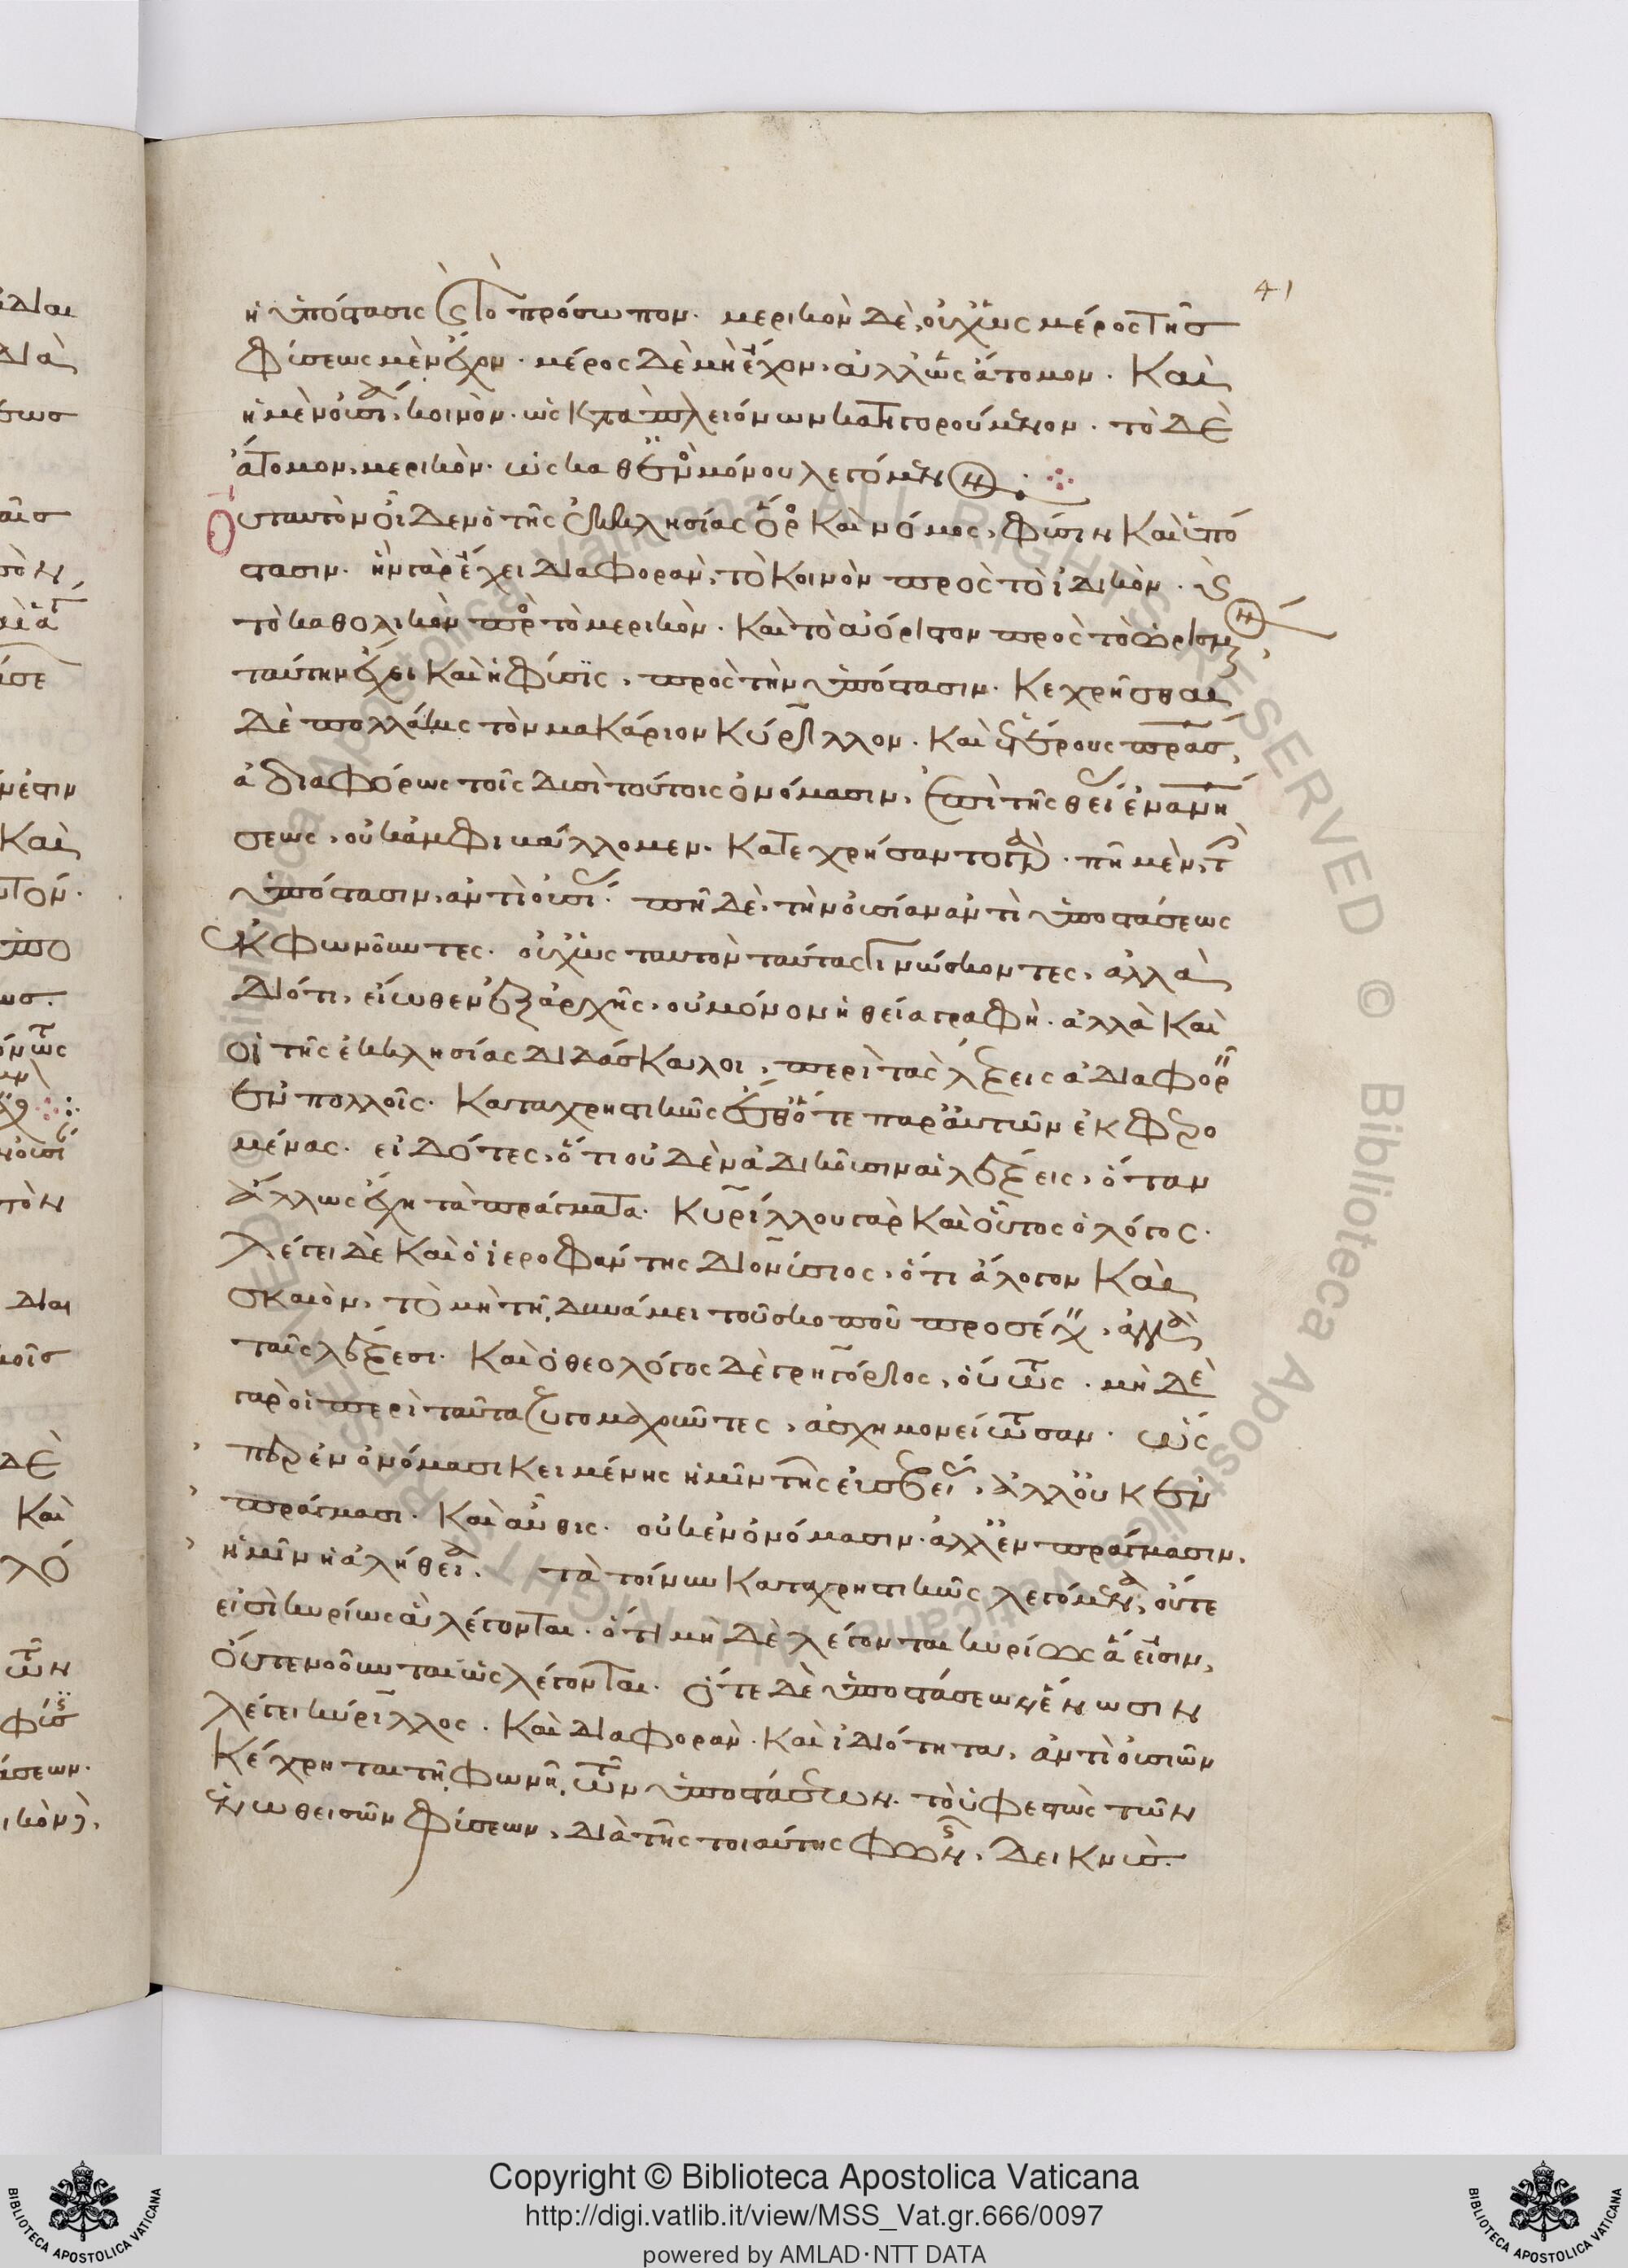 41
ἡ ὑπόστασις καὶ τὸ πρόσωπον. μερικὸν δὲ, οὐχ ὡς μέρος τῆς
φύσεως μὲν ἔχον. μέρος δὲ μὴ ἔχον, ἀλλ' ὡς ἄτομον. Καὶ
ἡ μὲν οὐσία, κοινὸν. ὡς κατὰ πλειόνων κατηγορούμενον. τὸ δὲ
ἄτομον, μερικὸν. ὡς καθ' ἑνὸς μόνου λεγόμενον.
Οὐ ταυτὸν οἶδεν ὁ τῆς ἐκκλησίας ὅρος καὶ νόμος, φύσιν καὶ ὑπό
στασιν. ἣν γὰρ ἔχει διαφορὰν, τὸ κοινὸν πρὸς τὸ ἰδικὸν. καὶ
τὸ καθολικὸν πρὸς τὸ μερικὸν. καὶ τὸ ἀόριστον πρὸς τὸ ὡρισμένον,
ταύτην ἔχει καὶ ἡ φύσις, πρὸς τὴν ὑπόστασιν. Κεχρῆσθαι
δὲ πολλάκις τὸν μακάριον Κύριλλον. καὶ ἑτέρους πατέρας,
ἀδιαφόρως τοῖς δυσὶ τούτοις ὀνόμασιν, ἐπὶ τῆς θείας ἐνανθρωπή
σεως, οὐκ ἀμφιβάλλομεν. Κατεχρήσαντο γὰρ. πῆ μὲν, τὴν
ὑπόστασιν, ἀντὶ οὐσίας. πῆ δὲ, τὴν οὐσίαν ἀντὶ ὑποστάσεως
ἐκφωνοῦντες. οὐχ ὡς ταυτὸν ταύτας γινώσκοντες, ἀλλὰ
διότι, εἴωθεν ἐξ ἀρχῆς, οὐ μόνον ἡ θεία γραφὴ. ἀλλὰ καὶ
οἱ τῆς ἐκκλησίας διδάσκαλοι, περὶ τὰς λέξεις ἀδιαφορεῖν
ἐν πολλοῖς. Καταχρηστικῶς ἔσθ' ὅτε παρ' αὐτῶν ἐκφερο
μένας. εἰδότες, ὅτι οὐδὲν ἀδικοῦσιν αἱ λέξεις, ὅταν
ἄλλως ἔχῃ τὰ πράγματα. Κυρίλλου γὰρ καὶ οὗτος ὁ λόγος.
λέγει δὲ καὶ ὁ ἱεροφάντης Διονύσιος, ὅτι ἄλογον καὶ
σκαιὸν, τὸ μὴ τῇ δυνάμει τοῦ σκοποῦ προσέχειν, ἀλλὰ
ταῖς λέξεσι. Καὶ ὁ θεολόγος δὲ γρηγόριος, οὕτως. μὴ δὲ
γὰρ οἱ περὶ ταῦτα ζυγομαχοῦντες, ἀσχημονείτωσαν. ὥς
περ ἐν ὀνόμασι κειμένης ἡμῖν τῆς εὐσεβείας, ἀλλ' οὐκ ἐν
πράγμασι. Καὶ αὖθις. οὐκ ἐν ὀνόμασιν. ἀλλ' ἐν πράγμασιν.
ἡμῖν ἡ ἀλήθεια. τὰ τοίνυν καταχρηστικῶς λεγόμενα, οὔτε
εἰσὶ κυρίως ἃ λέγονται. ὅτι μὴ δὲ λέγονται κυρίως ἅ εἰσιν,
οὔτε νοοῦνται ὡς λέγονται. ὅτε δὲ ὑποστάσεων ἕνωσιν
λέγει κύριλλος. καὶ διαφορὰν. καὶ ἰδιότητα, ἀντὶ οὐσιῶν
κέχρηται τῇ φωνῇ τῶν ὑποστάσεων. τὸ ὑφεστὼς τῶν
ἑνωθεισῶν φύσεων, διὰ τῆς τοιαύτης φωνῆς, δεικνύς.
Copyright © Biblioteca Apostolica Vaticana
http://digi.vatlib.it/view/MSS_Vat.gr.666/0097
powered by AMLAD·NTT DATA